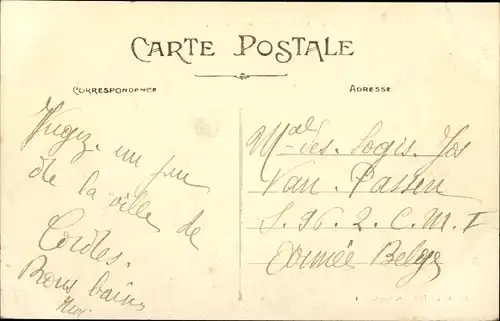 CARTE POSTALE
CORRESPONDANCE
ADRESSE
Jugez un peu
de la ville de
Cordes.
Bons baisers
Mal des Logis Jos
Van Passen
S. 96. 2. C. M. I
Armée Belge